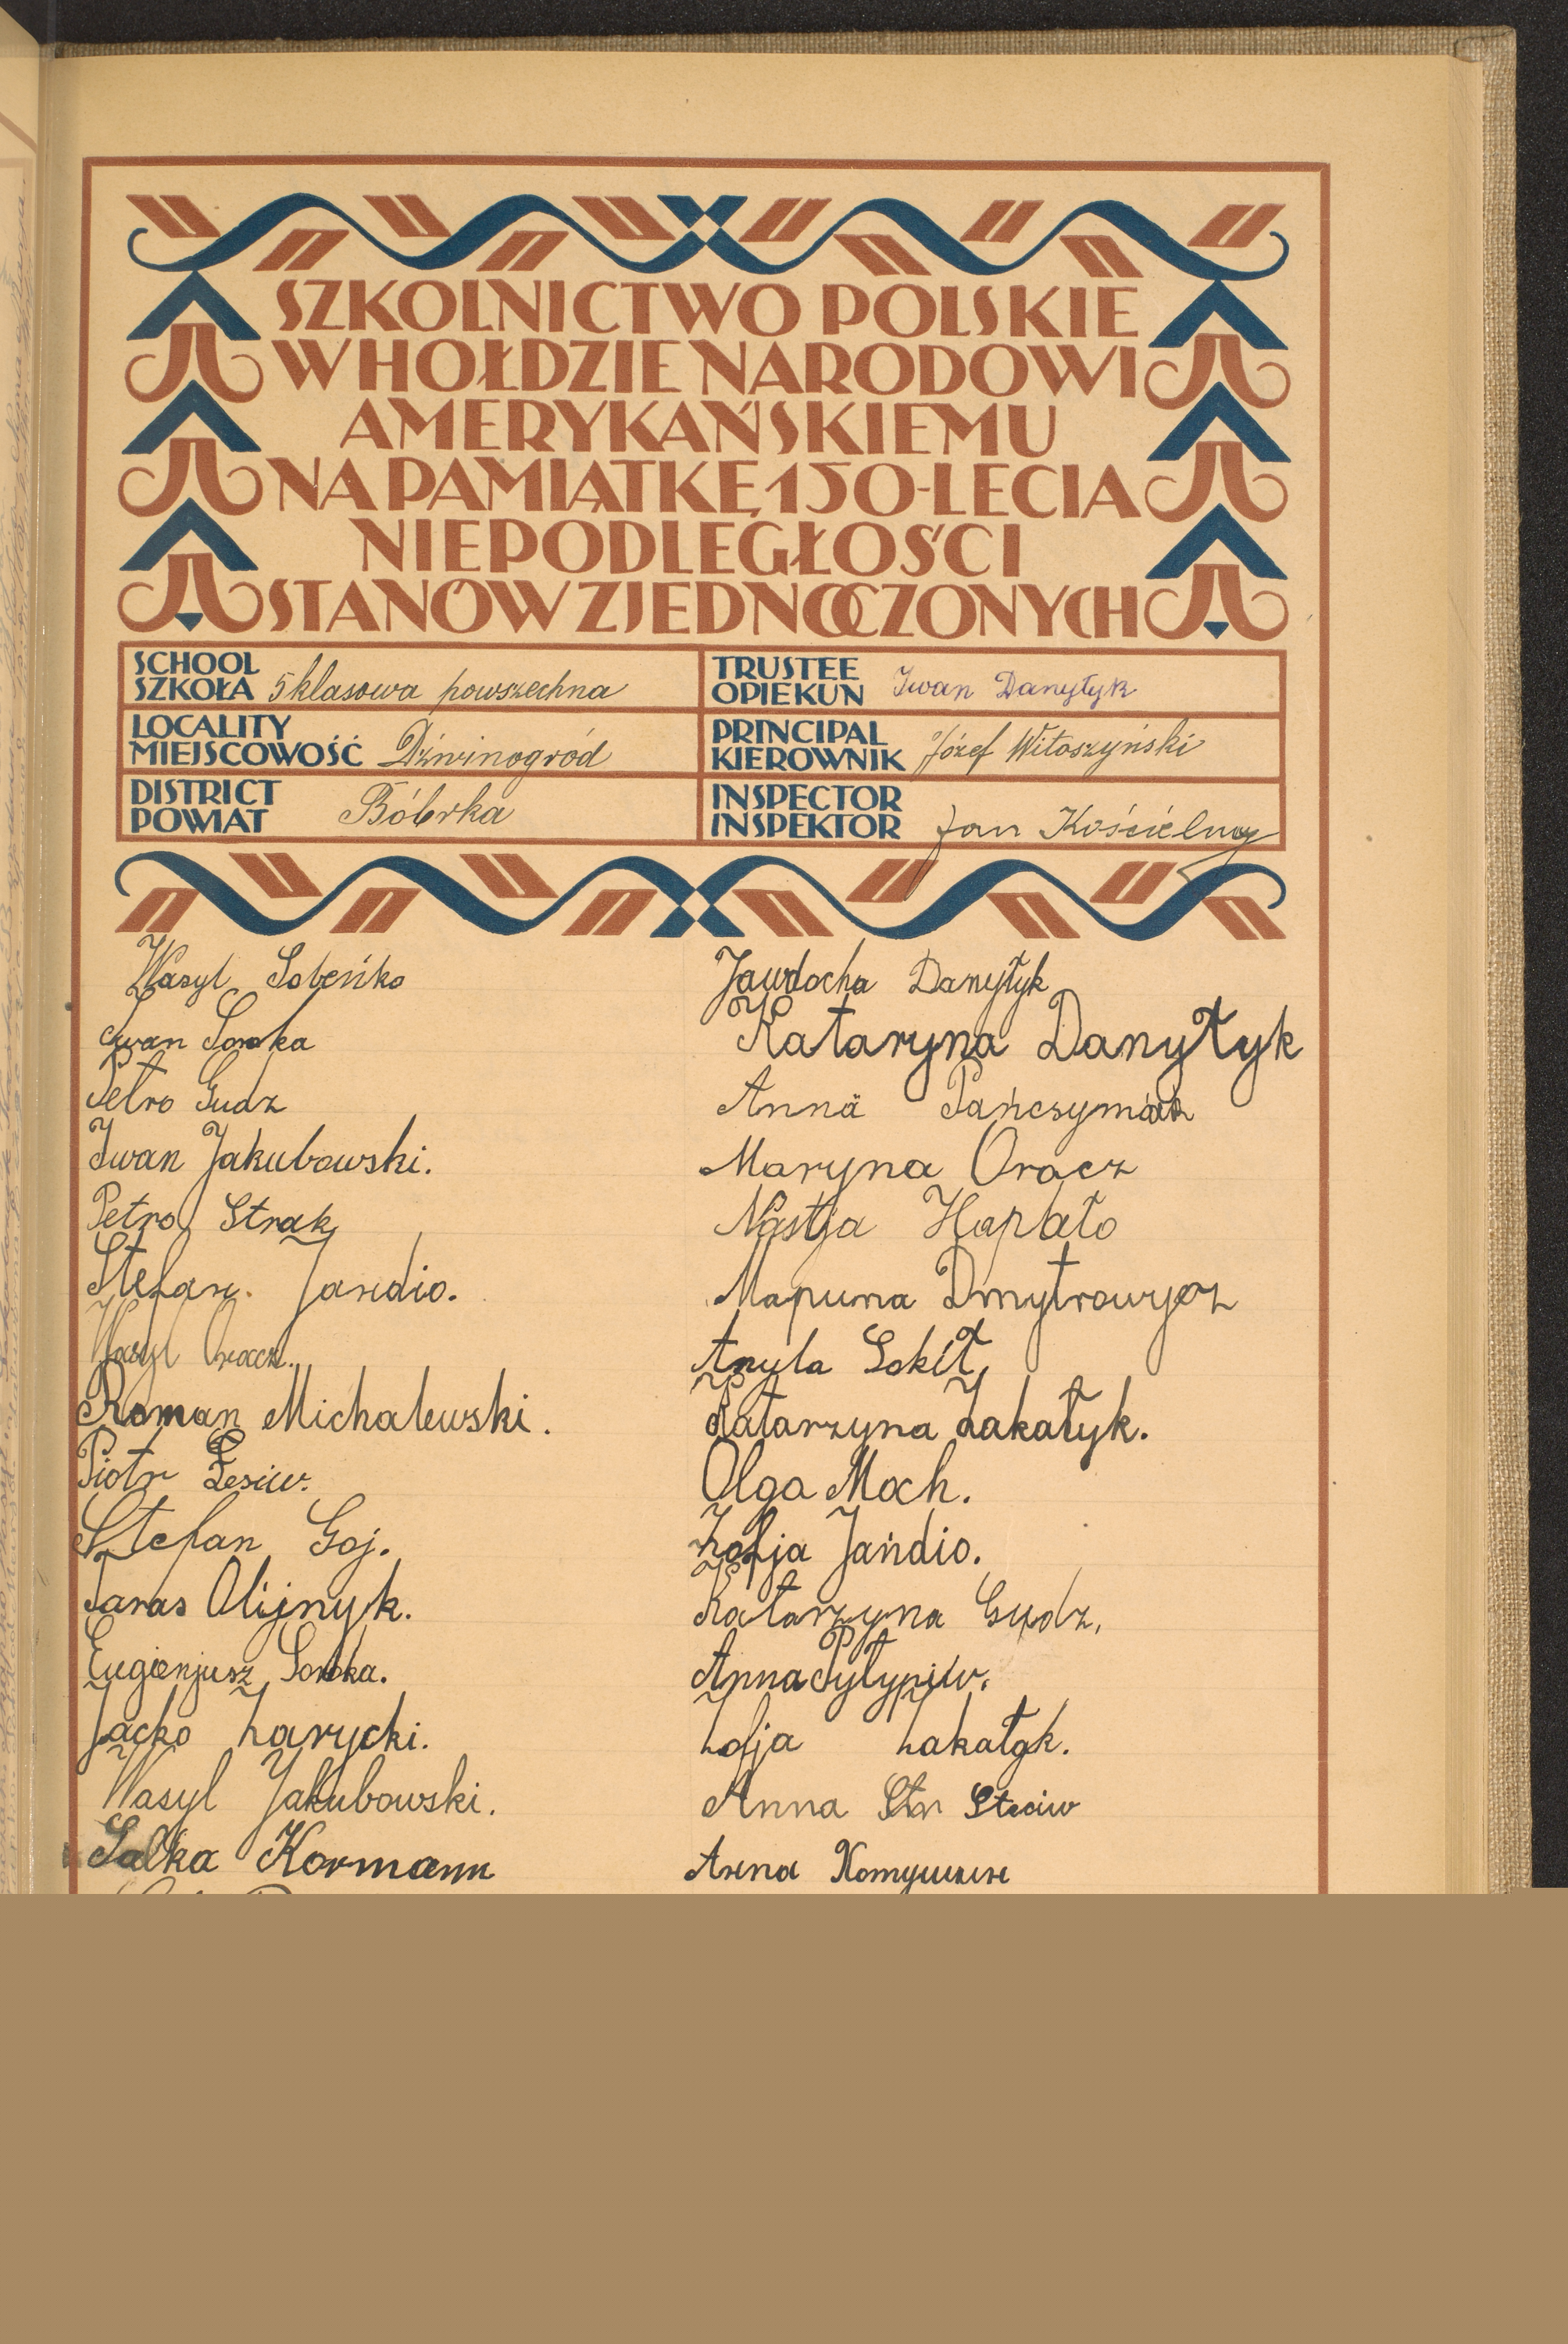 SZKOLNICTWO POLSKIE
W HOŁDZIE NARODOWI
AMERYKAŃSKIEMU
NA PAMIĄTKĘ 150-LECIA
NIEPODLEGŁOŚCI
STANÓW ZJEDNOCZONYCH
SCHOOL
SZKOŁA 5 klasowa powszechna
TRUSTEE
OPIEKUN Iwan Danyłyk
LOCALITY
MIEJSCOWOŚĆ Dźwinogród
PRINCIPAL
KIEROWNIK Józef Witoszyński
DISTRICT
POWIAT Bóbrka
INSPECTOR
INSPEKTOR Jan Kościelny
Wasyl Sobeńko
Iwan Soroka
Petro Gudz
Iwan Jakubowski.
Petro Strak
Stefan. Jandio.
Wasyl Oracz.
Roman Michalewski.
Piotr Łesiw.
Stefan Goj.
Taras Olijnyk.
Eugienjusz Soroka.
Jacko Zarycki.
Wasyl Jakubowski.
Salka Kormann
Jawdocha Danyłyk
Kataryna Danyłyk
Anna
Maryna Oracz
Nastja Hapało
Dmytrowycz
Anyla Sokił,
Katarzyna Zakałyk.
Olga Moch.
Zofja Jańdio.
Katarzyna Gudz,
Anna Pyłypiw.
Zofja Zakałyk.
Anna Stw Steciw
Anna